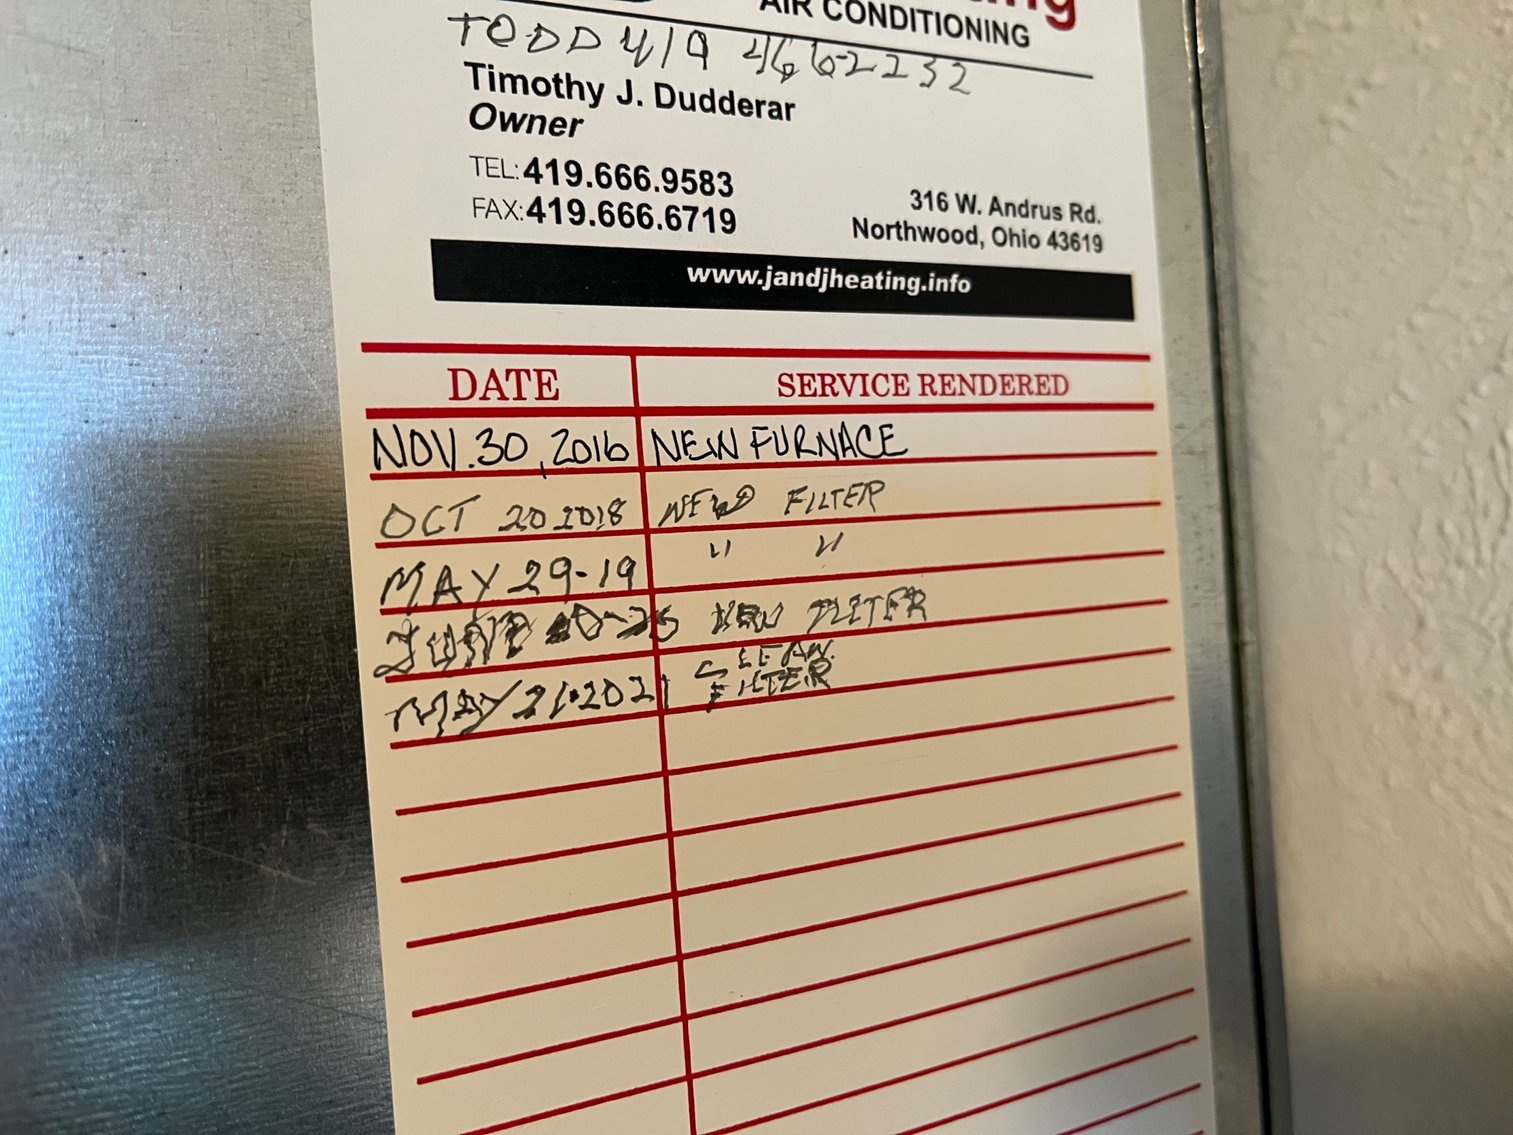 AIR CONDITIONING
TODD 419 466-2232
Timothy J. Dudderar
Owner
TEL: 419.666.9583
FAX: 419.666.6719
316 W. Andrus Rd.
Northwood, Ohio 43619
www.jandjheating.info
DATE SERVICE RENDERED
NOV. 30, 2016 NEW FURNACE
OCT 20 2018 NEW FILTER
MAY 29-19 " "
JUNE NEW FILTER
MAY 21·2021 CLEAN
FILTER